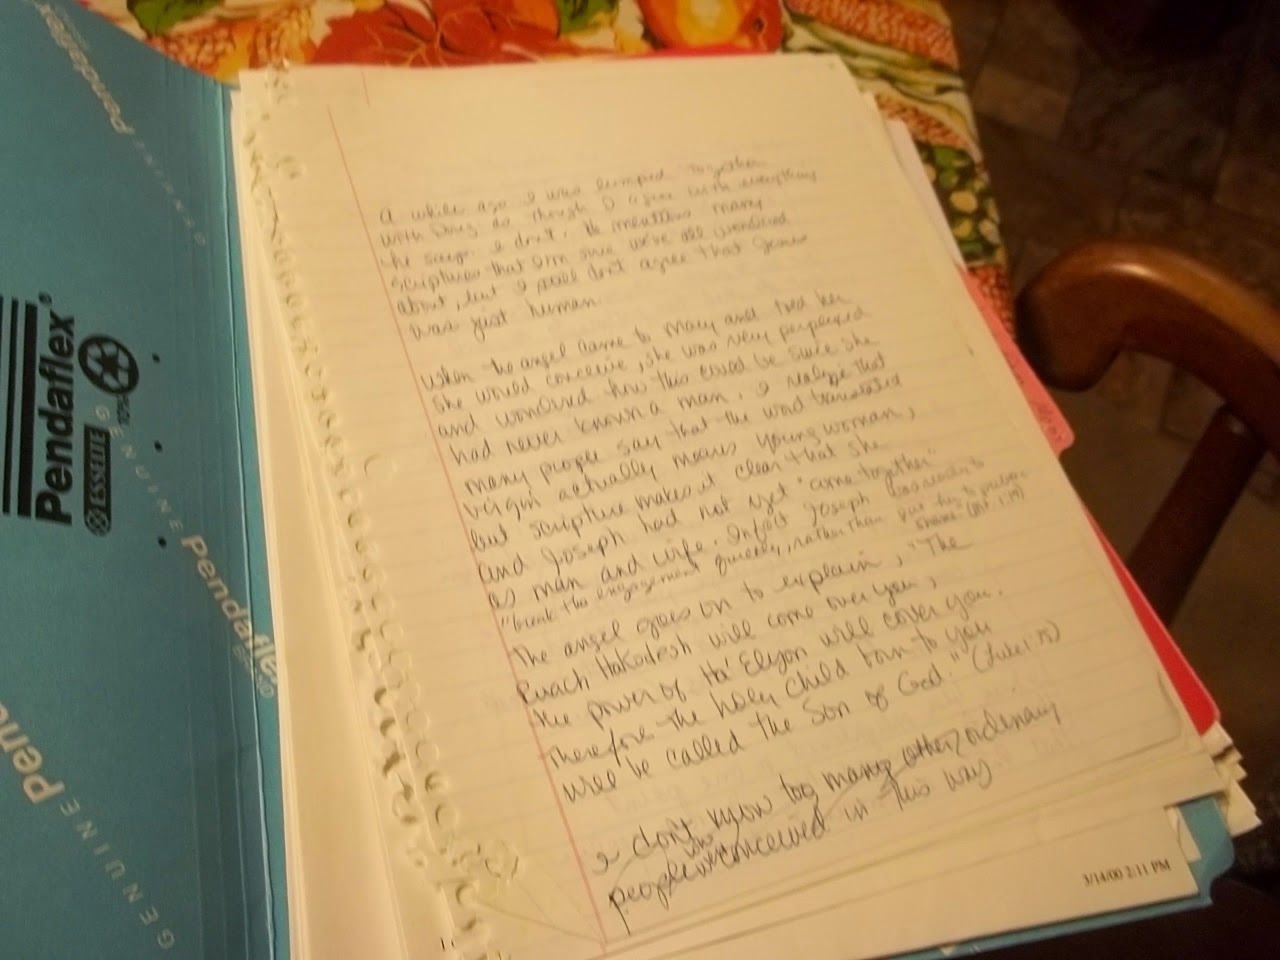 Pendaflex®
ESSELTE
10%
GENUINE Pendaflex
GENUINE Pendaflex
GENUINE Pen
Pendaflex
A while ago I was lumped together
with as though I agree with everything
he says. I don't. He mentions many
scriptures that I'm sure we've all wondered
about, but I still don't agree that Jesus
was just human.
When the angel came to Mary and told her
she would conceive, she was very perplexed
and wondered how this could be since she
had never known a man. I realize that
many people say that the word translated
virgin actually means young woman,
but scripture makes it clear that she
and Joseph had not yet "come together"
as man and wife. In fact Joseph was ready to
"break the engagement quietly, rather than put her to public
shame (Mt. 1:19)
The angel goes on to explain, "The
Ruach HaKodesh will come over you,
the power of Ha'Elyon will cover you.
Therefore the holy child born to you
will be called the Son of God." (Luke 1:35)
I don't know too many other ordinary
people who were conceived in this way.
3/14/00 2:11 PM